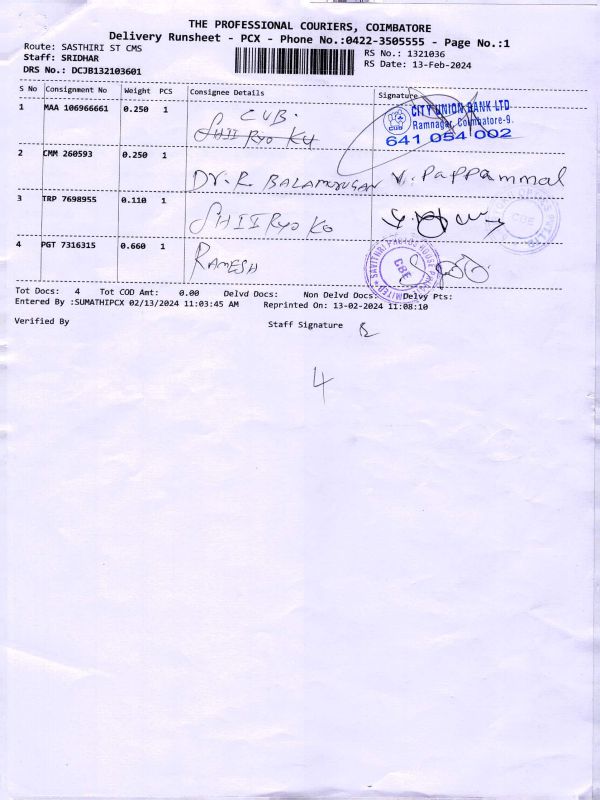 THE PROFESSIONAL COURIERS, COIMBATORE
Delivery Runsheet - PCX - Phone No.:0422-3505555 - Page No.:1
Route: SASTHIRI ST CMS
RS No.: 1321036
Staff: SRIDHAR
RS Date: 13-Feb-2024
DRS No.: DCJB132103601
S No Consignment No Weight PCS Consignee Details Signature
1 MAA 106966661 0.250 1 CUB.
CITY UNION BANK LTD
CUB Ramnagar, Coimbatore-9.
641 054 002
2 CMM 260593 0.250 1
Dr. R BALAMURUGAN V. Pappammal
3 TRP 7698955 0.110 1
SHII RYO KO
4 PGT 7316315 0.660 1
RAMESH
SAVITHRI PHOTO HOUSE
CBE
Tot Docs: 4 Tot COD Amt: 0.00 Delvd Docs: Non Delvd Docs: Delvy Pts:
Entered By :SUMATHIPCX 02/13/2024 11:03:45 AM Reprinted On: 13-02-2024 11:08:10
Verified By Staff Signature
4